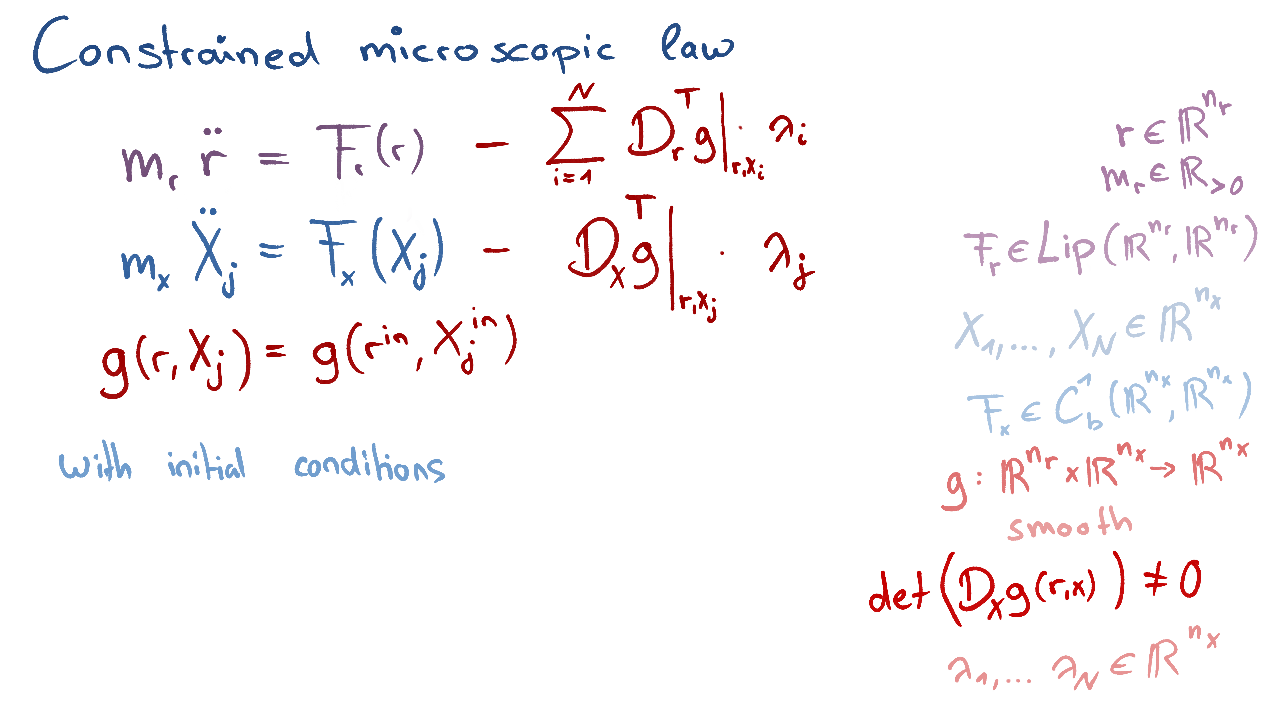 Constrained microscopic law
m_r r̈ = F_r(r) − ∑_{i=1}^{N} D_r^T g|_{r,X_i} · λ_i
m_x Ẍ_j = F_x(X_j) − D_x^T g|_{r,X_j} · λ_j
g(r, X_j) = g(r^{in}, X_j^{in})
with initial conditions
r ∈ ℝ^{n_r}
m_r ∈ ℝ_{>0}
F_r ∈ Lip(ℝ^{n_r}, ℝ^{n_r})
X_1, ..., X_N ∈ ℝ^{n_x}
F_x ∈ C_b^1(ℝ^{n_x}, ℝ^{n_x})
g : ℝ^{n_r} × ℝ^{n_x} → ℝ^{n_x}
smooth
det(D_x g(r,x)) ≠ 0
λ_1, ... λ_N ∈ ℝ^{n_x}